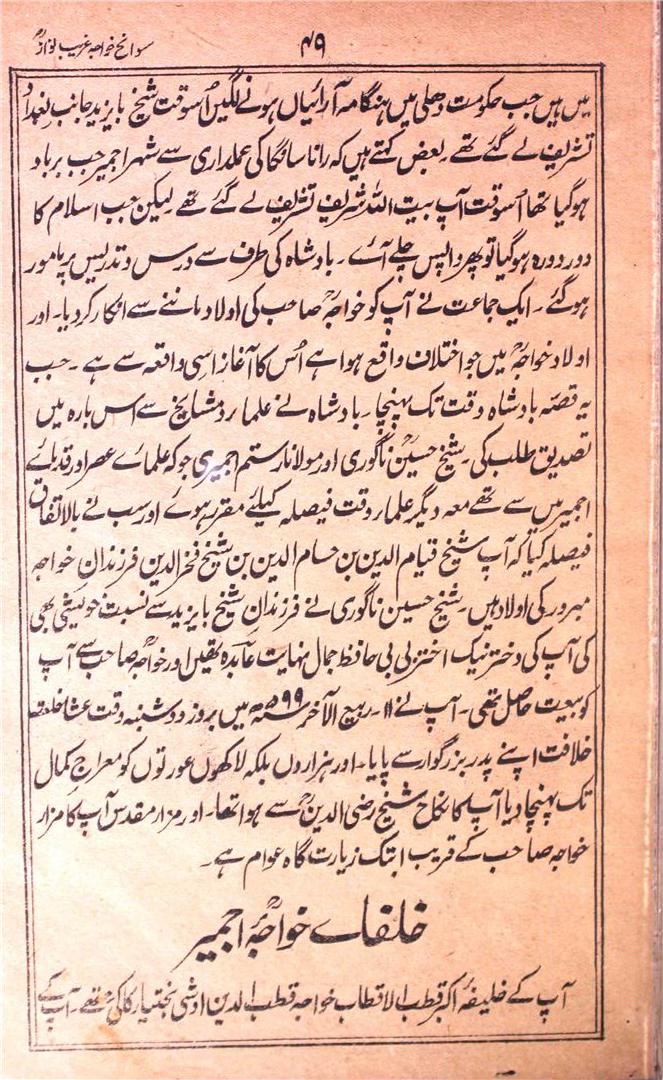 سوانح خواجہ غریب نوازؒ
۴۹
میں ہیں جب حکومت دھلی میں ہنگامہ آرائیاں ہونے لگیں اسوقت شیخ بایزید جانب بغداد
تشریف لے گئے تھے۔ بعض کہتے ہیں کہ رانا سانگا کی عملداری سے شہر اجمیر جب برباد
ہوگیا تھا اسوقت آپ بیت اللہ شریف تشریف لے گئے تھے لیکن جب اسلام کا
دور دورہ ہوگیا تو پھر واپس چلے آئے۔ بادشاہ کی طرف سے درس و تدریس پر مامور
ہوگئے۔ ایک جماعت نے آپ کو خواجہؒ صاحب کی اولاد ماننے سے انکار کردیا۔ اور
اولاد خواجہؒ میں جو اختلاف واقع ہوا ہے اُس کا آغاز اسی واقعہ سے ہے۔ جب
یہ قصّہ بادشاہ وقت تک پہنچا۔ بادشاہ نے علماء و مشایخ سے اس بارہ میں
تصدیق طلب کی۔ شیخ حسینؒ ناگوری اور مولانا رستم اجمیری جو کہ علمائے عصر اور قدمائے
اجمیر میں سے تھے معہ دیگر علماء وقت فیصلہ کیلئے مقرر ہوئے اور سب نے بالاتفاق
فیصلہ کیا کہ آپ شیخ قیام الدین بن حسام الدین بن شیخ فخر الدین فرزندان خواجہ
میرور کی اولاد ہیں۔ شیخ حسین ناگوری نے فرزندان شیخ بایزید سے نسبت خویشی بھی
کی آپ کی دختر نیک اختر بی بی حافظ جمال نہایت عابدہ تھیں اور خواجہؒ صاحب سے آپ
کو بیعت حاصل تھی۔ آپ نے ۱۱۔ ربیع الآخر ۵۹۹ھ میں بروز دوشنبہ وقت عشا خلعت
خلافت اپنے پدر بزرگوار سے پایا۔ اور ہزاروں بلکہ لاکھوں عورتوں کو معراج کمال
تک پہنچا دیا آپ کا نکاح شیخ رضی الدینؒ سے ہوا تھا۔ اور مزار مقدس آپ کا مزار
خواجہ صاحب کے قریب ابتک زیارت گاہ عوام ہے۔
خلفائے خواجۂؒ اجمیر
آپ کے خلیفہ اکبر قطب الاقطاب خواجہ قطب الدین اوشی بختیار کاکی تھے۔ آپ کے